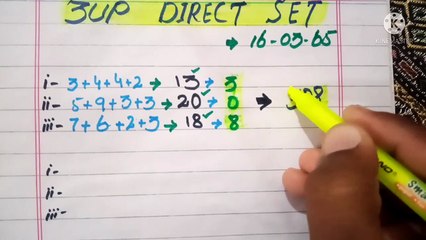 3UP DIRECT SET
→ 16-03-65
i- 3+4+4+2 → 13 → 3
ii- 5+9+3+3 → 20 → 0 → 308
iii- 7+6+2+3 → 18 → 8
i-
ii-
iii-